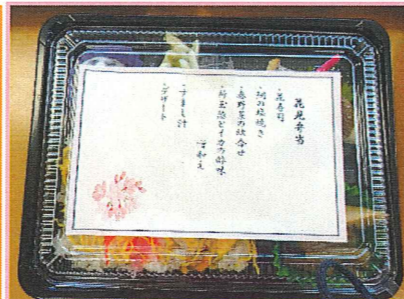 花見弁当
・花寿司
・鯛の塩焼き
・春野菜の炊合せ
・菊花蕪とイカの酢味
噌和え
・すまし汁
・デザート